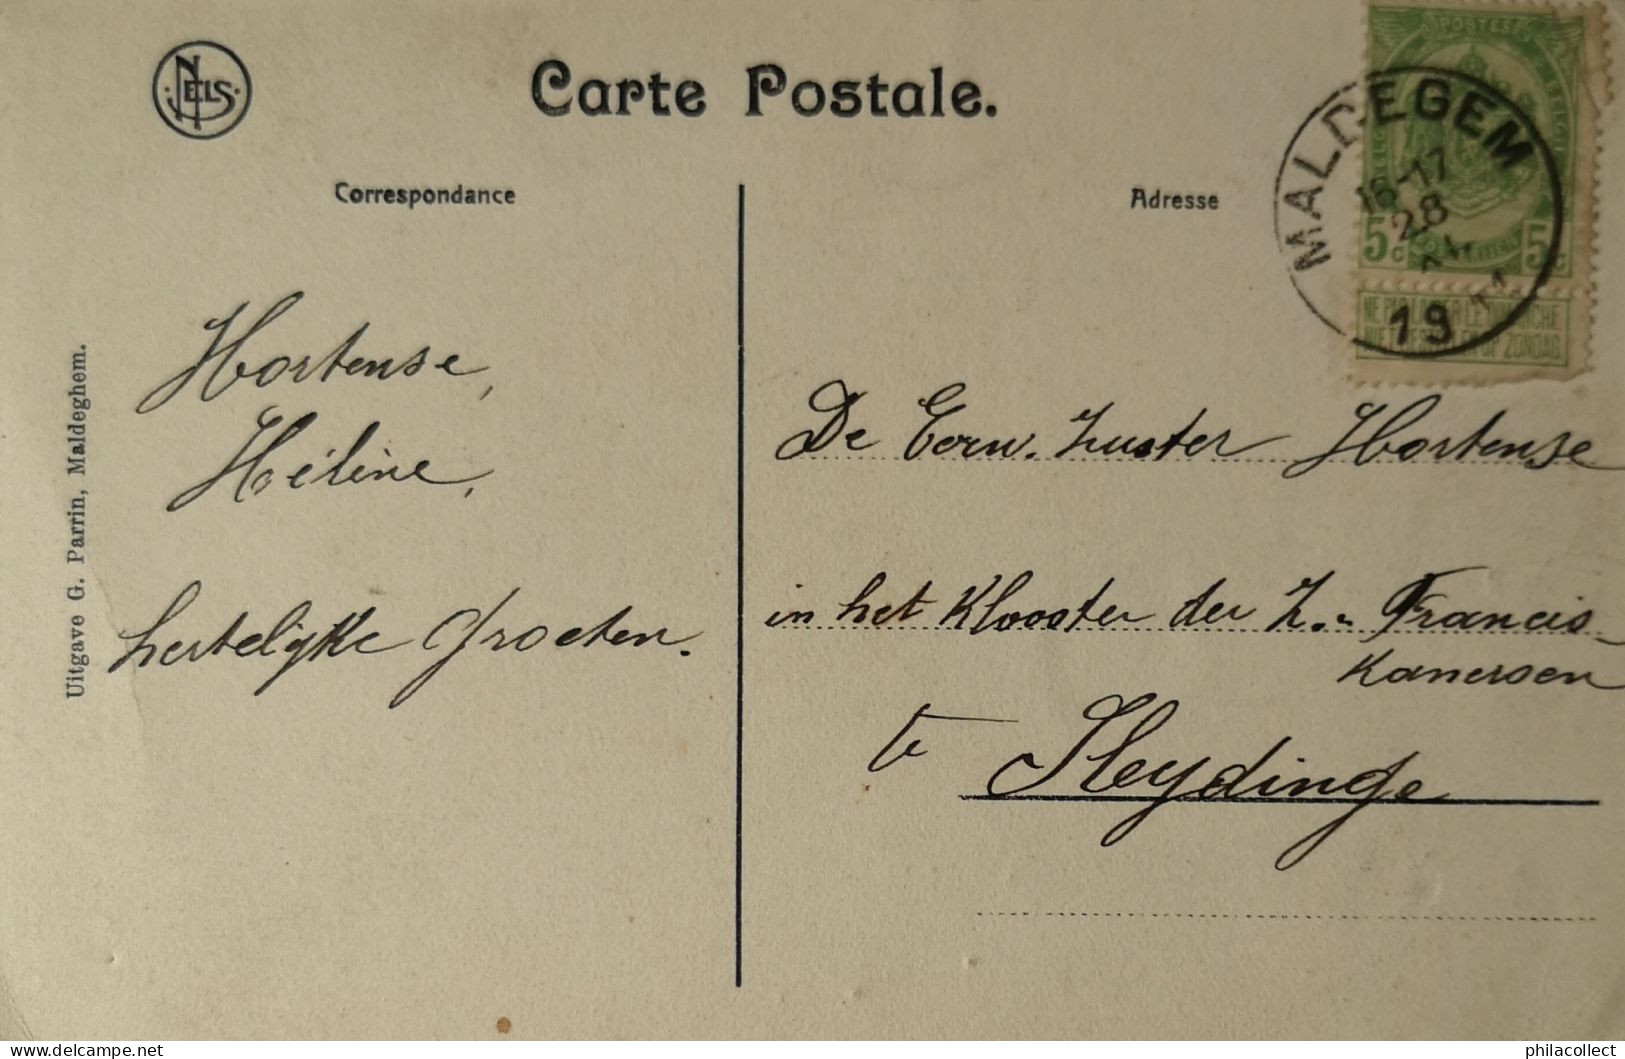 NELS
Carte Postale.
Correspondance
Adresse
POSTES
MALDEGEM
16-17
28
19 11
5c 5c
NE PAS LIVRER LE DIMANCHE
NIET BESTELLEN OP ZONDAG
Hortense,
Hélène,
hertelijke Groeten.
Uitgave G. Parrin, Maldeghem.
De Eerw. Zuster Hortense
in het Klooster der Z.. Francis-
kanersen
te Sleydinge
philacollect